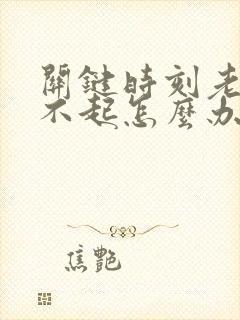 關鍵時刻老
不起怎麼办
焦艷